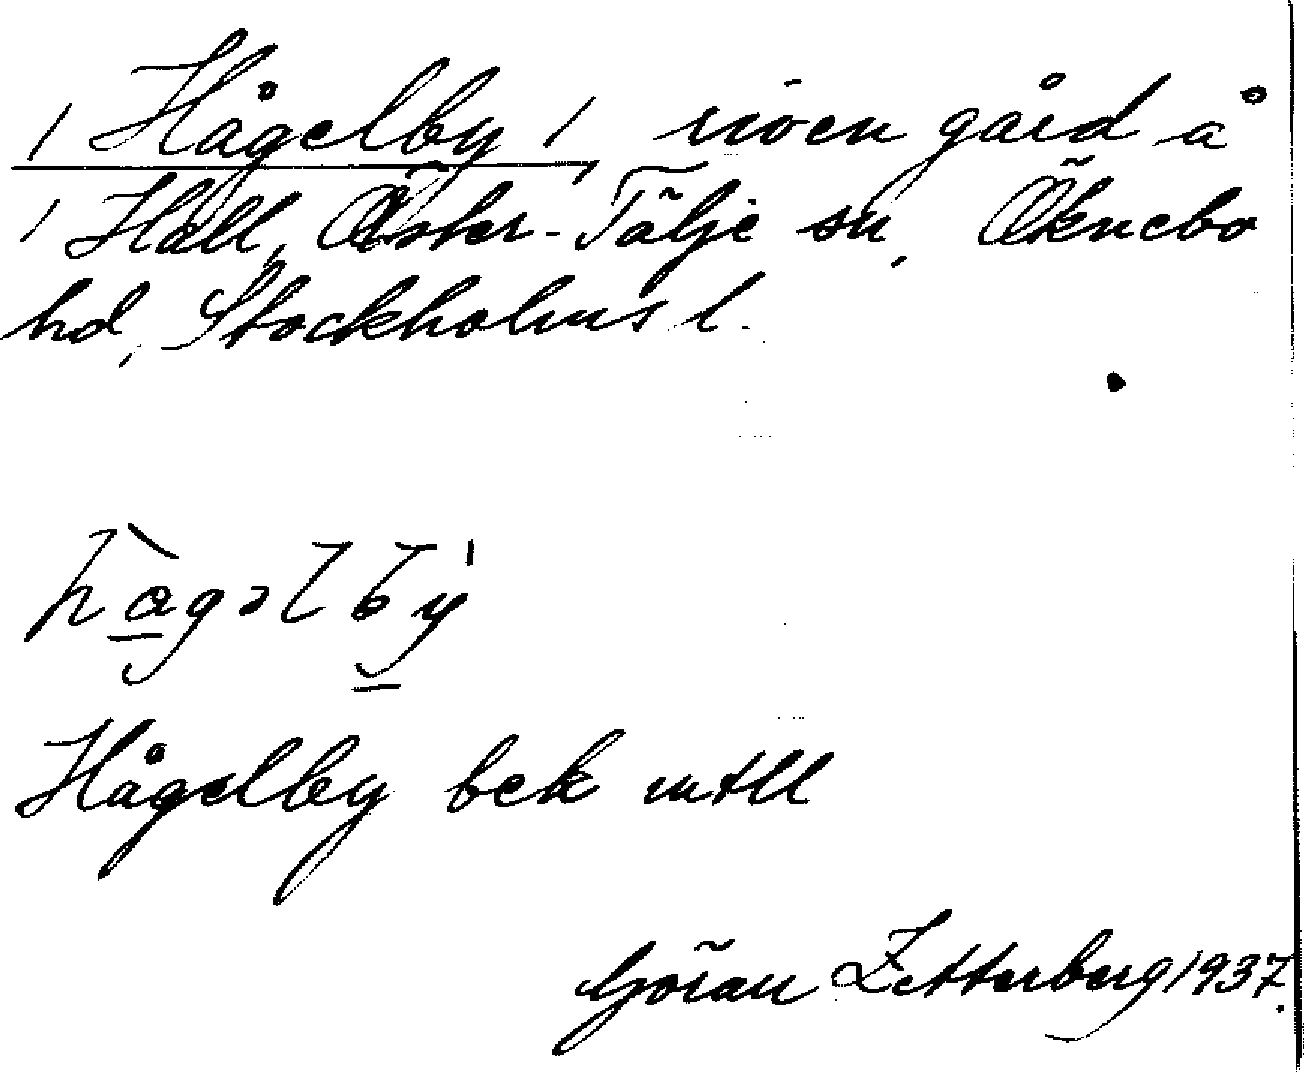 / Hågelby / gård å
/ Hall, Öster-Tälje sn, Öknebo
hd, Stockholms l.
hàgəlbý
Hågelby bek mtll
Göran Zetterberg 1937.